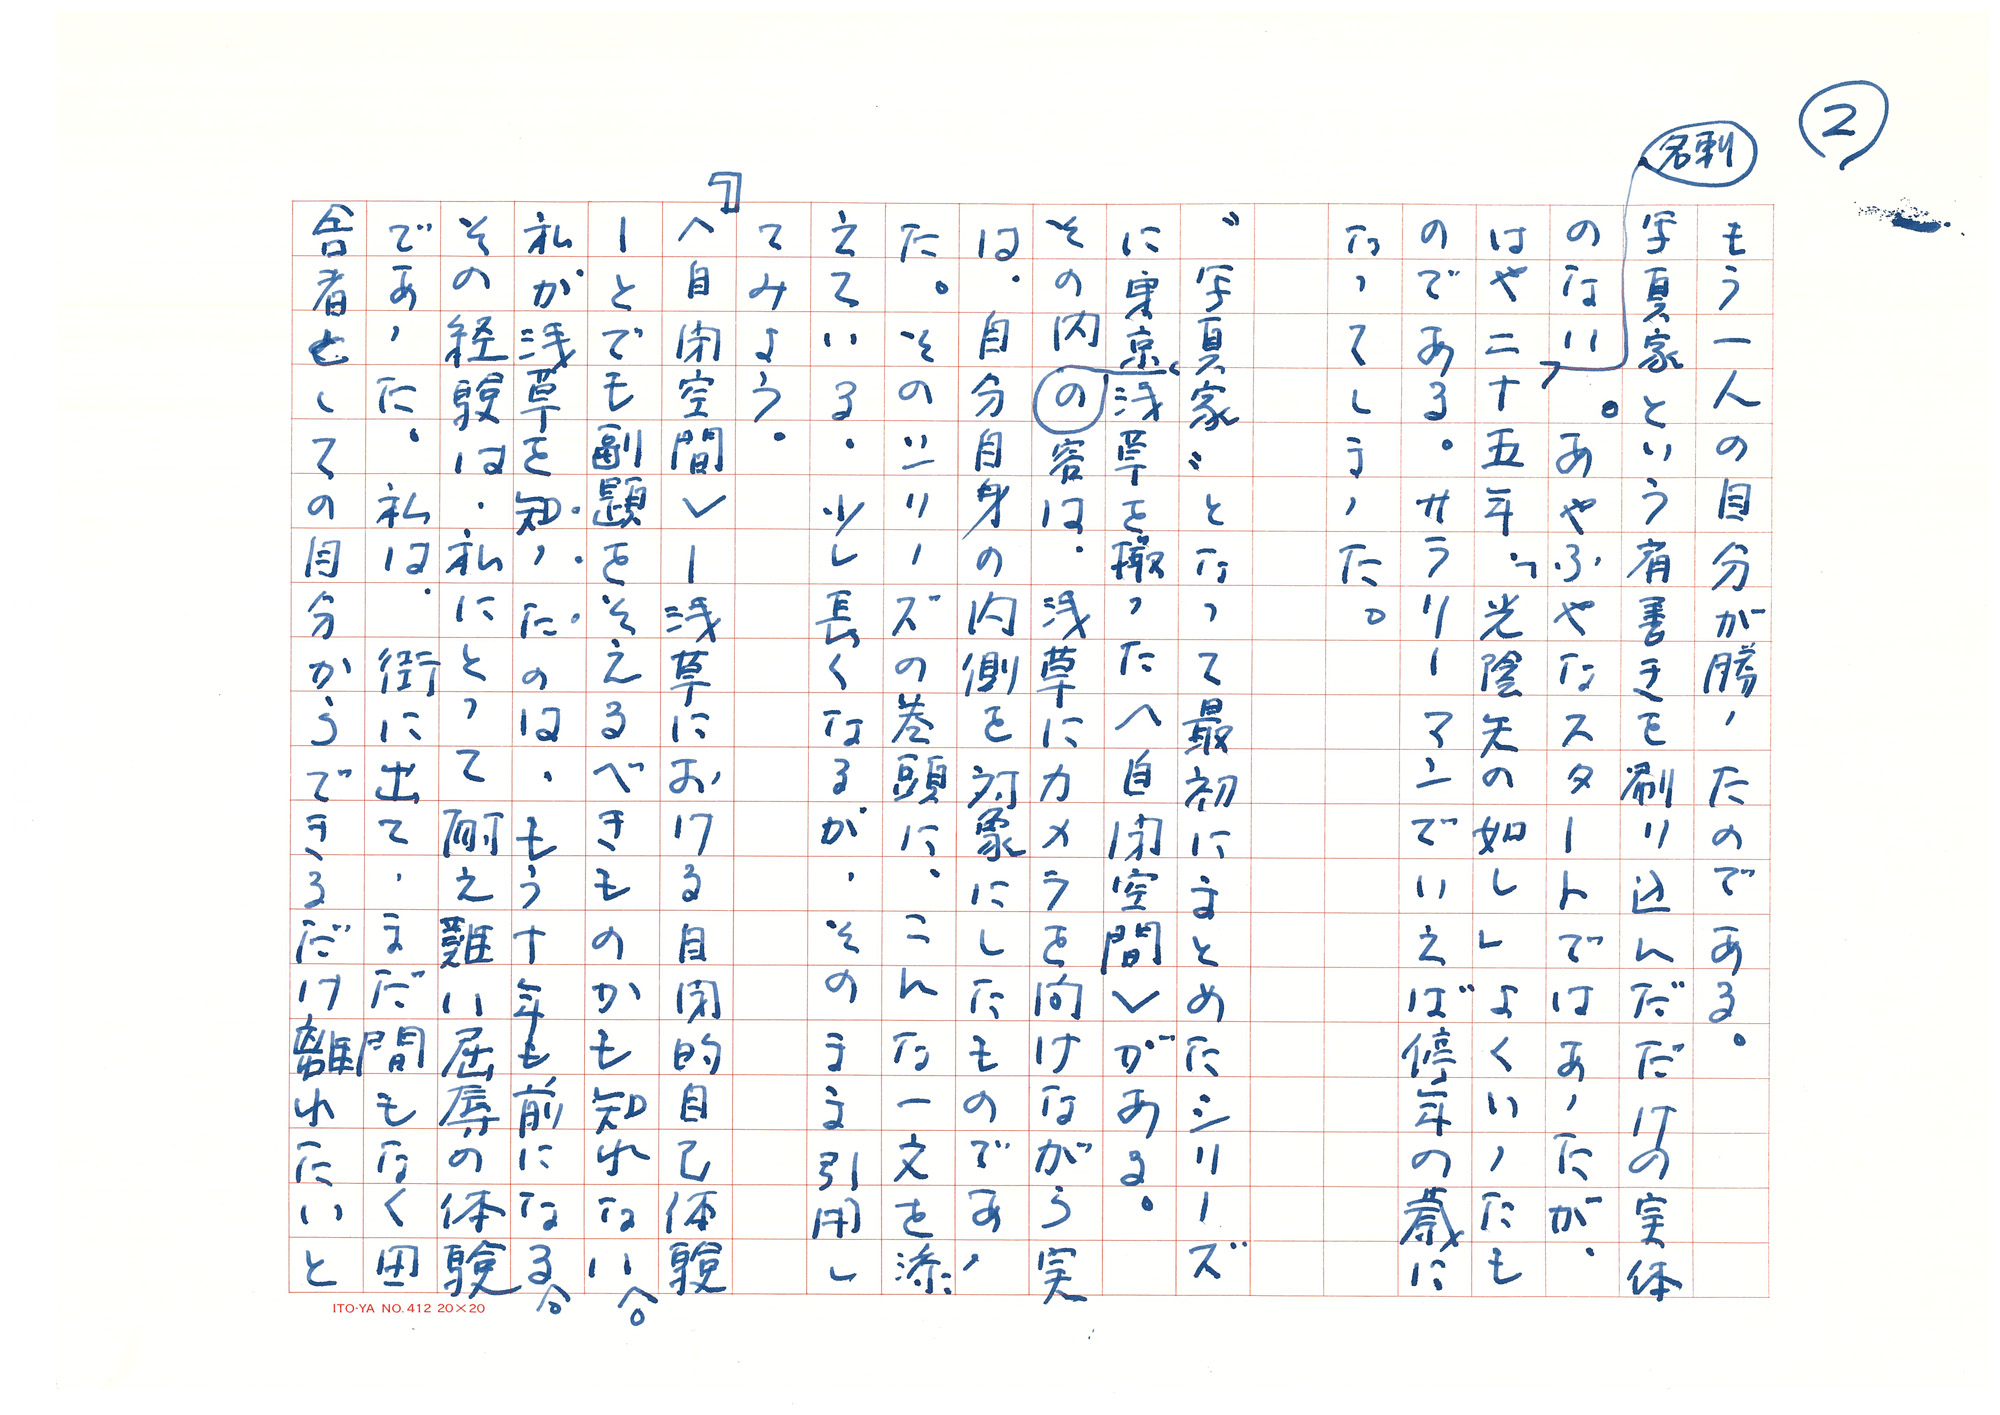 ②
名刺
もう一人の自分が勝ったのである。
写真家という肩書きを刷り込んだだけの実体
のない。あやふやなスタートではあったが、
はや二十五年。「光陰矢の如し」よくいったも
のである。サラリーマンでいえば停年の歳に
なってしまった。
〝写真家〟となって最初にまとめたシリーズ
に東京、浅草を撮った〈自閉空間〉がある。
その内の容は、浅草にカメラを向けながら実
は、自分自身の内側を対象にしたものであっ
た。そのシリーズの巻頭に、こんな一文を添
えている。少し長くなるが、そのまま引用し
てみよう。
『〈自閉空間〉ー浅草における自閉的自己体験
ーとでも副題をそえるべきものかも知れない。
私が浅草を知ったのは、もう十年も前になる。
その経験は、私にとって耐え難い屈辱の体験
であった。私は、街に出て、まだ間もなく田
舎者としての自分からできるだけ離れたいと
ITO-YA NO.412 20×20